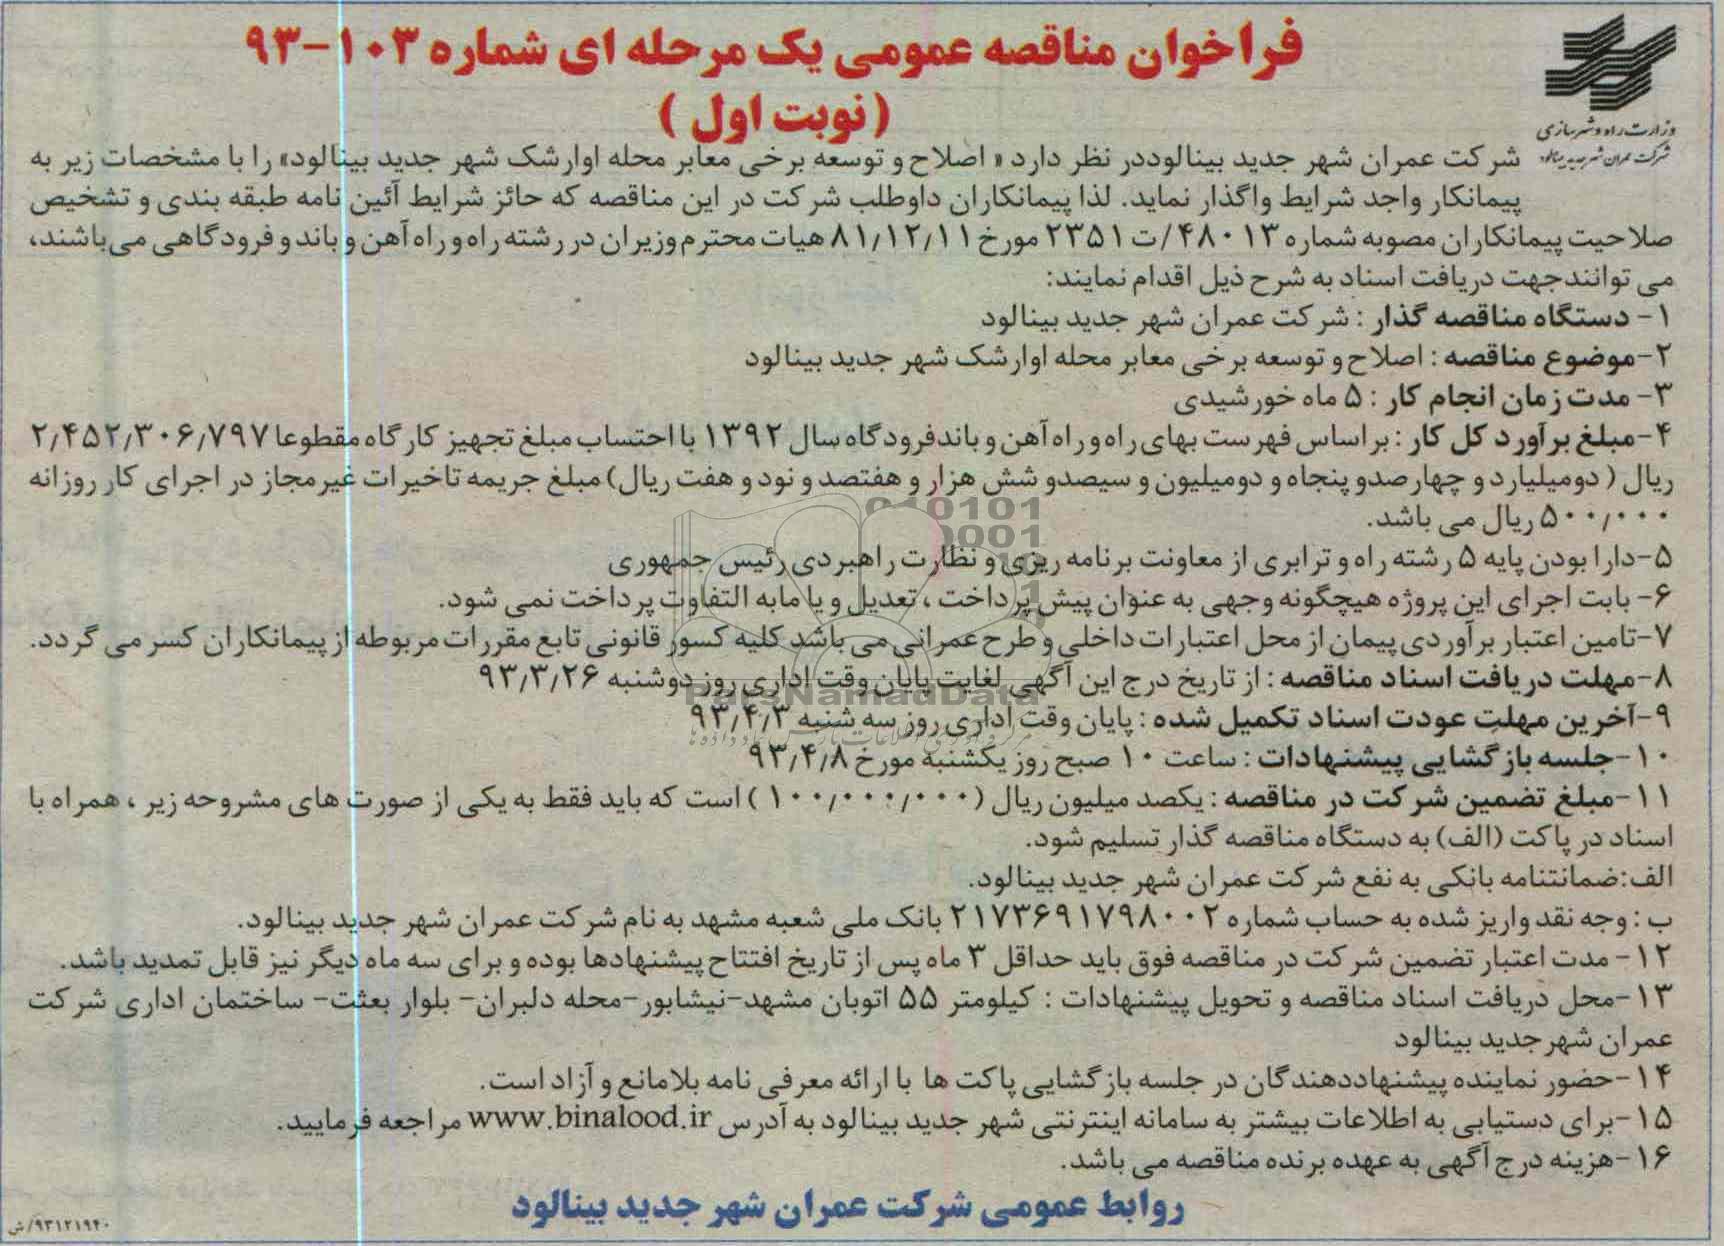 فراخوان مناقصه عمومی یک مرحله ای شماره ۱۰۳-۹۳
(نوبت اول)
وزارت راه و شهرسازی
شرکت عمران شهر جدید بینالود
شرکت عمران شهر جدید بینالوددر نظر دارد «اصلاح و توسعه برخی معابر محله اوارشک شهر جدید بینالود» را با مشخصات زیر به
پیمانکار واجد شرایط واگذار نماید. لذا پیمانکاران داوطلب شرکت در این مناقصه که حائز شرایط آئین نامه طبقه بندی و تشخیص
صلاحیت پیمانکاران مصوبه شماره ۴۸۰۱۳/ت ۲۳۵۱ مورخ ۸۱/۱۲/۱۱ هیات محترم وزیران در رشته راه و راه آهن و باند و فرودگاهی می‌باشند،
می توانندجهت دریافت اسناد به شرح ذیل اقدام نمایند:
۱- دستگاه مناقصه گذار : شرکت عمران شهر جدید بینالود
۲-موضوع مناقصه : اصلاح و توسعه برخی معابر محله اوارشک شهر جدید بینالود
۳- مدت زمان انجام کار : ۵ ماه خورشیدی
۴-مبلغ برآورد کل کار : بر اساس فهرست بهای راه و راه آهن و باندفرودگاه سال ۱۳۹۲ با احتساب مبلغ تجهیز کارگاه مقطوعا ۲/۴۵۲/۳۰۶/۷۹۷
ریال (دومیلیارد و چهارصدو پنجاه و دومیلیون و سیصدو شش هزار و هفتصد و نود و هفت ریال) مبلغ جریمه تاخیرات غیرمجاز در اجرای کار روزانه
۵۰۰/۰۰۰ ریال می باشد.
۵-دارا بودن پایه ۵ رشته راه و ترابری از معاونت برنامه ریزی و نظارت راهبردی رئیس جمهوری
۶- بابت اجرای این پروژه هیچگونه وجهی به عنوان پیش پرداخت ، تعدیل و یا مابه التفاوت پرداخت نمی شود.
۷-تامین اعتبار برآوردی پیمان از محل اعتبارات داخلی و طرح عمرانی می باشد کلیه کسور قانونی تابع مقررات مربوطه از پیمانکاران کسر می گردد.
۸-مهلت دریافت اسناد مناقصه : از تاریخ درج این آگهی لغایت پایان وقت اداری روز دوشنبه ۹۳/۳/۲۶
ParsNamadData
۹-آخرین مهلت عودت اسناد تکمیل شده : پایان وقت اداری روز سه شنبه ۹۳/۴/۳
۱۰-جلسه بازگشایی پیشنهادات : ساعت ۱۰ صبح روز یکشنبه مورخ ۹۳/۴/۸
۱۱-مبلغ تضمین شرکت در مناقصه : یکصد میلیون ریال (۱۰۰/۰۰۰/۰۰۰) است که باید فقط به یکی از صورت های مشروحه زیر ، همراه با
اسناد در پاکت (الف) به دستگاه مناقصه گذار تسلیم شود.
الف:ضمانتنامه بانکی به نفع شرکت عمران شهر جدید بینالود.
ب : وجه نقد واریز شده به حساب شماره ۲۱۷۳۶۹۱۷۹۸۰۰۲ بانک ملی شعبه مشهد به نام شرکت عمران شهر جدید بینالود.
۱۲- مدت اعتبار تضمین شرکت در مناقصه فوق باید حداقل ۳ ماه پس از تاریخ افتتاح پیشنهادها بوده و برای سه ماه دیگر نیز قابل تمدید باشد.
۱۳-محل دریافت اسناد مناقصه و تحویل پیشنهادات : کیلومتر ۵۵ اتوبان مشهد-نیشابور-محله دلبران- بلوار بعثت- ساختمان اداری شرکت
عمران شهرجدید بینالود
۱۴-حضور نماینده پیشنهاددهندگان در جلسه بازگشایی پاکت ها با ارائه معرفی نامه بلامانع و آزاد است.
۱۵-برای دستیابی به اطلاعات بیشتر به سامانه اینترنتی شهر جدید بینالود به آدرس www.binalood.ir مراجعه فرمایید.
۱۶-هزینه درج آگهی به عهده برنده مناقصه می باشد.
روابط عمومی شرکت عمران شهر جدید بینالود
۹۳۱۲۱۹۴۰/ش